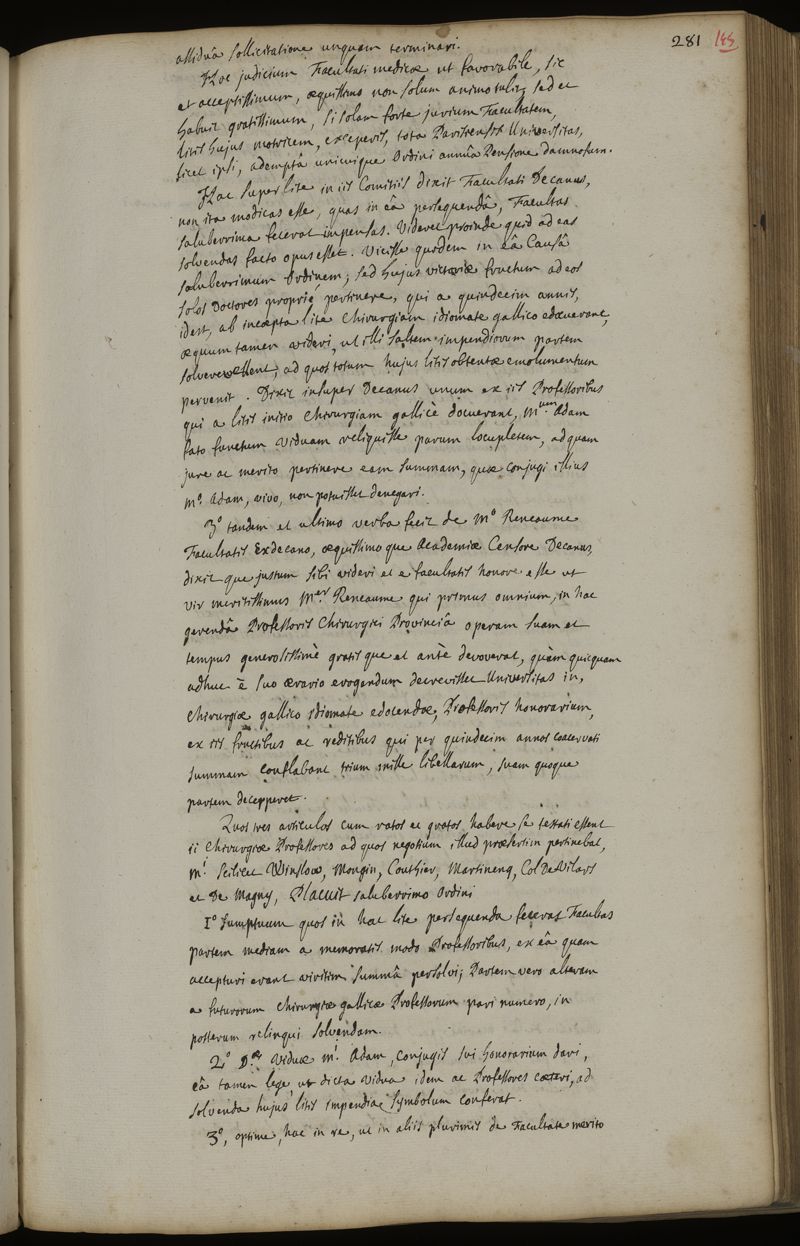 281 145
assiduâ sollicitatione unquam terminari.
Hoc judicium Facultati medicae ut favorabile, sic
et acceptissimum, aequissimo non solum animo tulit, sed et
habuit gratissimum, si solam forte jurium Facultatem,
litis hujus motricem, exceperis, tota Parisiensis Universitas,
licet ipsi, ademptâ unicuique Ordini annuâ Pensione damnosum.
Hac super lite in iis Comitiis dixit Facultati Decanus,
non ita modicas esse, quas in eâ persequendâ, Facultas
saluberrima fecerat impensas. Videret proinde quid ad eas
solvendas facto opus esset. Vicisse quidem in eâ Causâ
saluberrimum Ordinem; sed hujus victoriae fructum ad eos
solos Doctores propriè pertinere, qui a quindecim annis,
idest, ab incoepta lite Chirurgiam idiomate gallico edocuerant,
aequum tamen videri, ut illi saltem impendiorum partem
solvere vellent, ad quos totum hujus litis obtentae emolumentum
pervenit. Dixit insuper Decanus unum ex iis Professoribus
qui a litis initio Chirurgiam gallicè docuerant, M.um Adam
fato functum viduam reliquisse parum locupletem, ad quam
jure ac merito pertinere eam summam, quae conjugi illius
M.o Adam, vivo, non potuisset denegari.
3.o tandem et ultimo verba fecit de M.o Reneaume
Facultatis Exdecano, aequissimoque Academiae Censore Decanus,
dixitque justum sibi videri et e facultatis honore esse ut
vir meritissimus M.er Reneaume qui primus omnium, in hac
gerendâ Professoris Chirurgici Provinciâ operam suam et
tempus generosissimè gratisque et antè devoverat, quàm quicquam
adhuc è suo aerario erogandum decrevisset Universitas in,
Chirurgiae gallico idiomate edocendae, Professoris honorarium,
ex iis fructibus ac reditibus qui per quindecim annos coacervati
summam conflabant trium mille libellarum, suam quoque
partem decerperet.
Quos tres articulos cum ratos ac gratos habere se testati essent
ii Chirurgiae Professores ad quos negotium illud praesertim pertinebat,
M.i Scilicet Winslow, Mongin, Couthier, Martinenq, Col De Vilars
et De Magny, Placuit saluberrimo Ordini
1.o sumptuum quos in hac lite persequenda fecerat Facultas
partem mediam a memoratis modo Professoribus, ex eâ quam
accepturi erant viritim summâ persolvi; Partem vero alteram
a futurorum Chirurgiae gallicae Professorum pari numero, in
posterum relinqui solvendam.
2.o D.ae Viduae M.i Adam, conjugis sui honorarium dari,
eâ tamen lege ut dicta vidua idem ac Professores caeteri, ad
solvenda hujus litis impendia symbolum conferat.
3.o, optime, hac in re, ut in aliis plurimis de Facultate merito